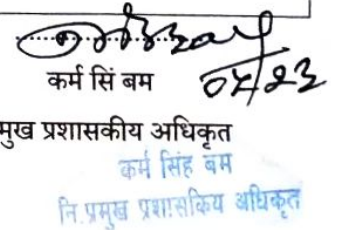 कर्म सिं बम
मुख प्रशासकीय अधिकृत
कर्म सिंह बम
नि.प्रमुख प्रशासकिय अधिकृत